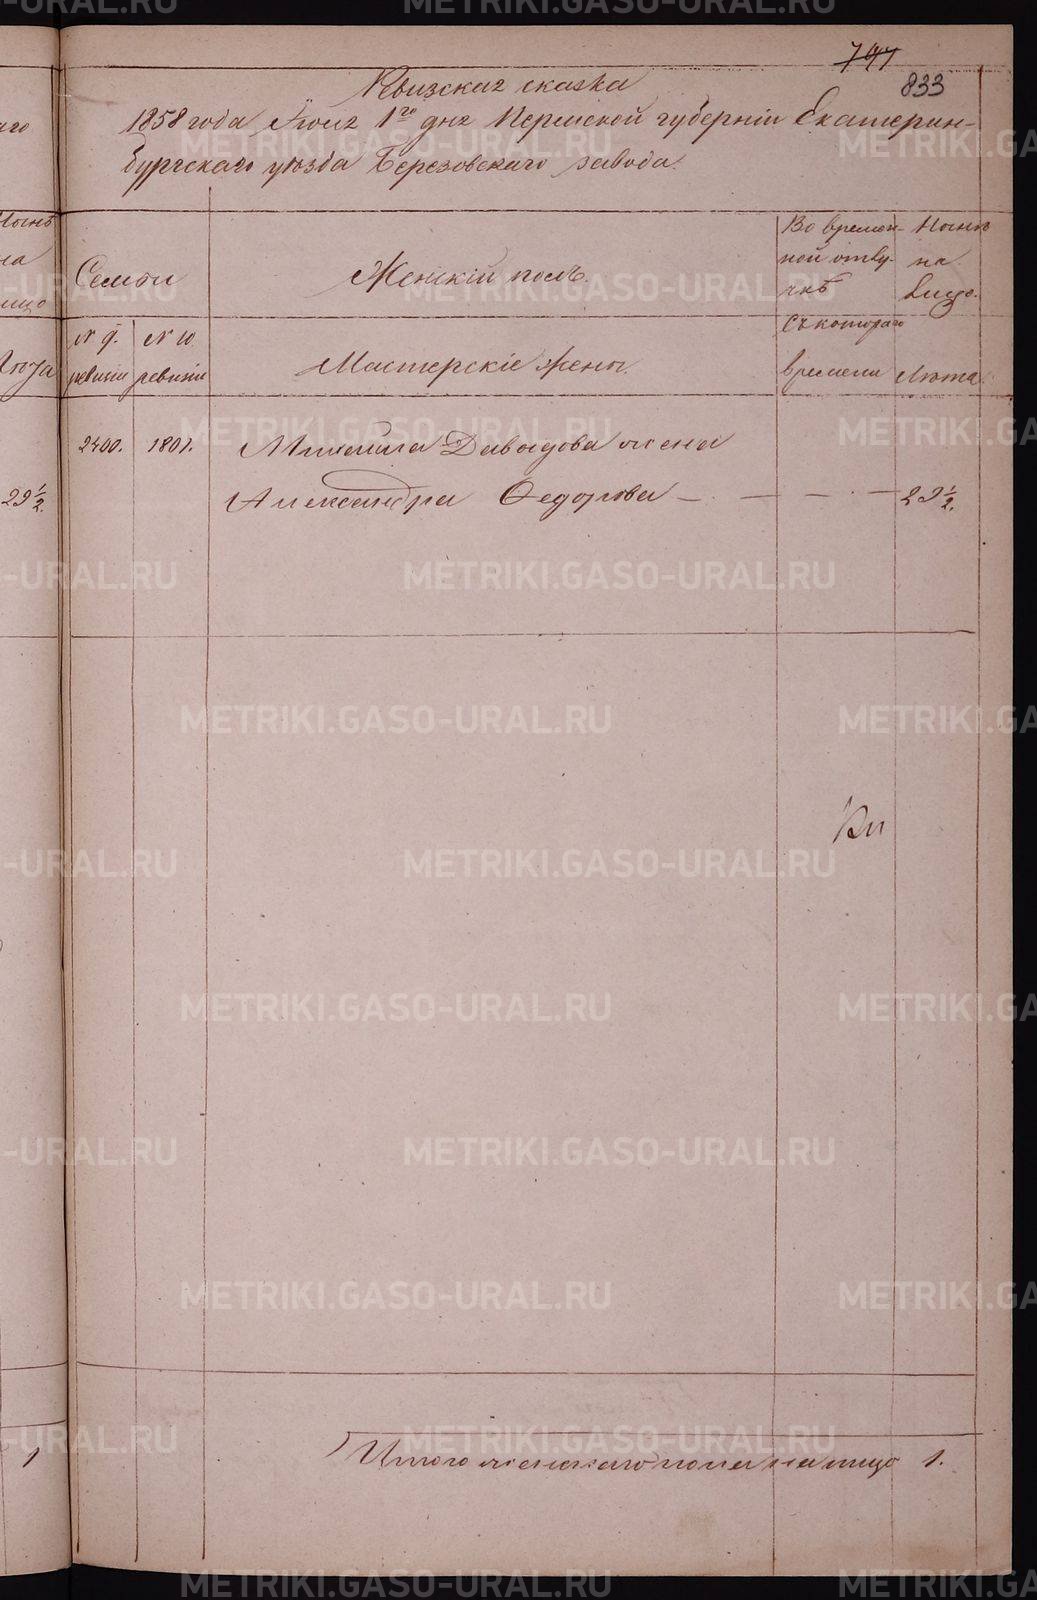 747
833
Ревизская сказка
1858 года Июня 1го дня Пермской губернiи Екатерин-
бургского уѣзда Березовскаго завода.
Семьи
Женскiй полъ.
Во времен-
ной отлу-
чкѣ
Нынѣ
на
лицо.
№ 9.
ревизiи
№ 10
ревизiи
Мастерскiе жены.
Съ котораго
времени
Лѣта.
2400. 1801. Михаила Давыдова жена
Александра Федорова — . — — . — 29 1/2.
29 1/2.
Итого женскаго пола на лицо 1.
1
METRIKI.GASO-URAL.RU